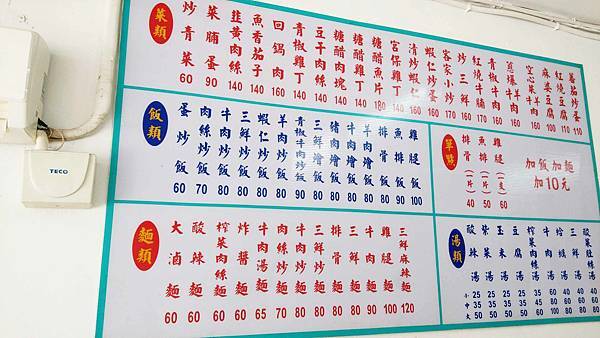 菜類
炒青菜 60
菜脯蛋 90
韭黃肉絲 140
魚香茄子 140
回鍋肉 160
青椒雞丁 140
豆干肉絲 140
糖醋肉塊 140
糖醋雞丁 140
糖醋魚片 180
宮保雞丁
清炒蝦仁 160
蝦仁炒蛋
客家小炒
炒三鮮
紅燒牛腩
青椒牛肉
蔥爆牛羊肉
空心菜牛羊肉
麻婆豆腐 100
紅燒豆腐 100
蕃茄炒蛋 110
飯類
蛋炒飯 60
肉絲炒飯 70
牛肉炒飯 80
三鮮炒飯 80
蝦仁炒飯 80
羊肉炒飯 80
青椒牛肉炒飯 90
三鮮燴飯 80
豬肉燴飯 80
牛肉燴飯 80
羊肉燴飯 80
排骨飯 80
魚排飯 90
雞腿飯 100
單點
排骨(一片) 40
魚排(一片) 50
雞腿(一支) 60
加飯加麵
加10元
麵類
大滷麵 60
酸辣麵 60
榨菜肉絲麵 60
炸醬麵 60
牛肉湯麵 65
肉絲炒麵 70
牛肉炒麵 80
三鮮炒麵 80
排骨麵 80
三鮮麵 80
牛肉麵 90
雞腿麵 100
三鮮麻辣麵 120
湯類
小 中 大
酸辣湯 25 35 50
紫菜湯 25 35 50
玉米湯 25 35 50
豆腐湯 25 35 50
榨菜肉絲湯 35 45 60
牛肉湯
蛤蜊湯
三鮮湯
TECO